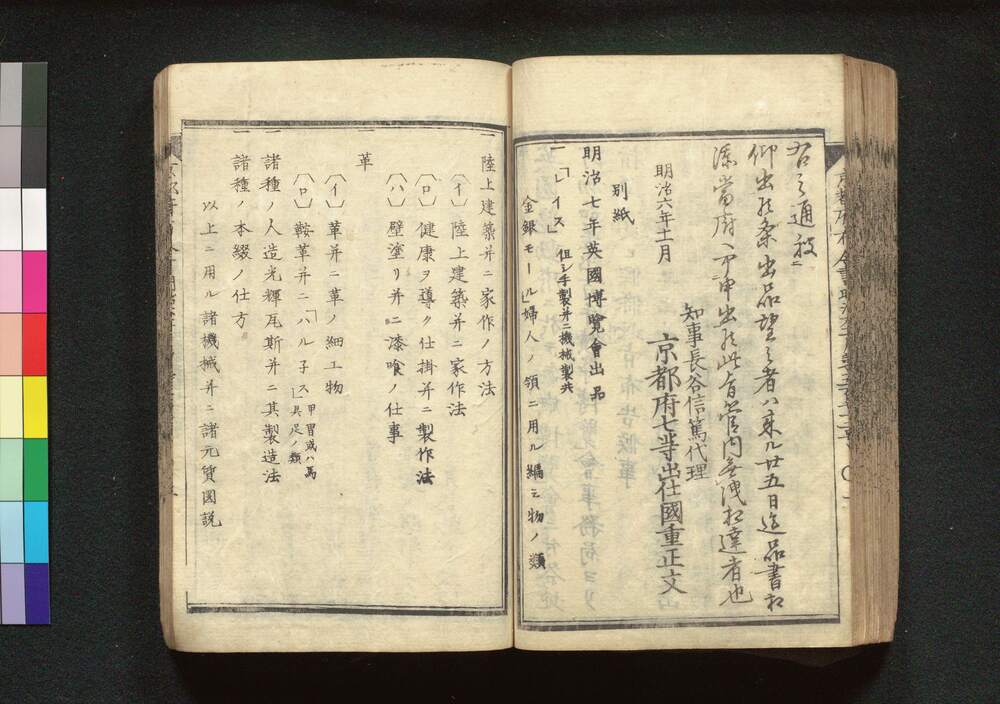 右之通被
仰出候条出品望之者ハ来ル廿五日迄品書相
添当府ヘ可申出候此旨管内無洩相達者也
明治六年十一月
知事長谷信篤代理
京都府七等出仕國重正文
別紙
明治七年英國博覧會出品
一「レイス」 但シ手製并ニ機械製共
金銀モール」婦人ノ領ニ用ル編ミ物ノ類
一 陸上建築并ニ家作ノ方法
(イ) 陸上建築并ニ家作法
(ロ) 健康ヲ導ク仕掛并ニ製作法
(ハ) 壁塗リ并ニ漆喰ノ仕事
一 革
(イ) 革并ニ革ノ細工物
(ロ) 鞍革并ニ「ハル子ス」甲冑或ハ馬具足ノ類
一 諸種ノ人造光輝瓦斯并ニ其製造法
一 諸種ノ本綴ノ仕方
以上ニ用ル諸機械并ニ諸元質図説